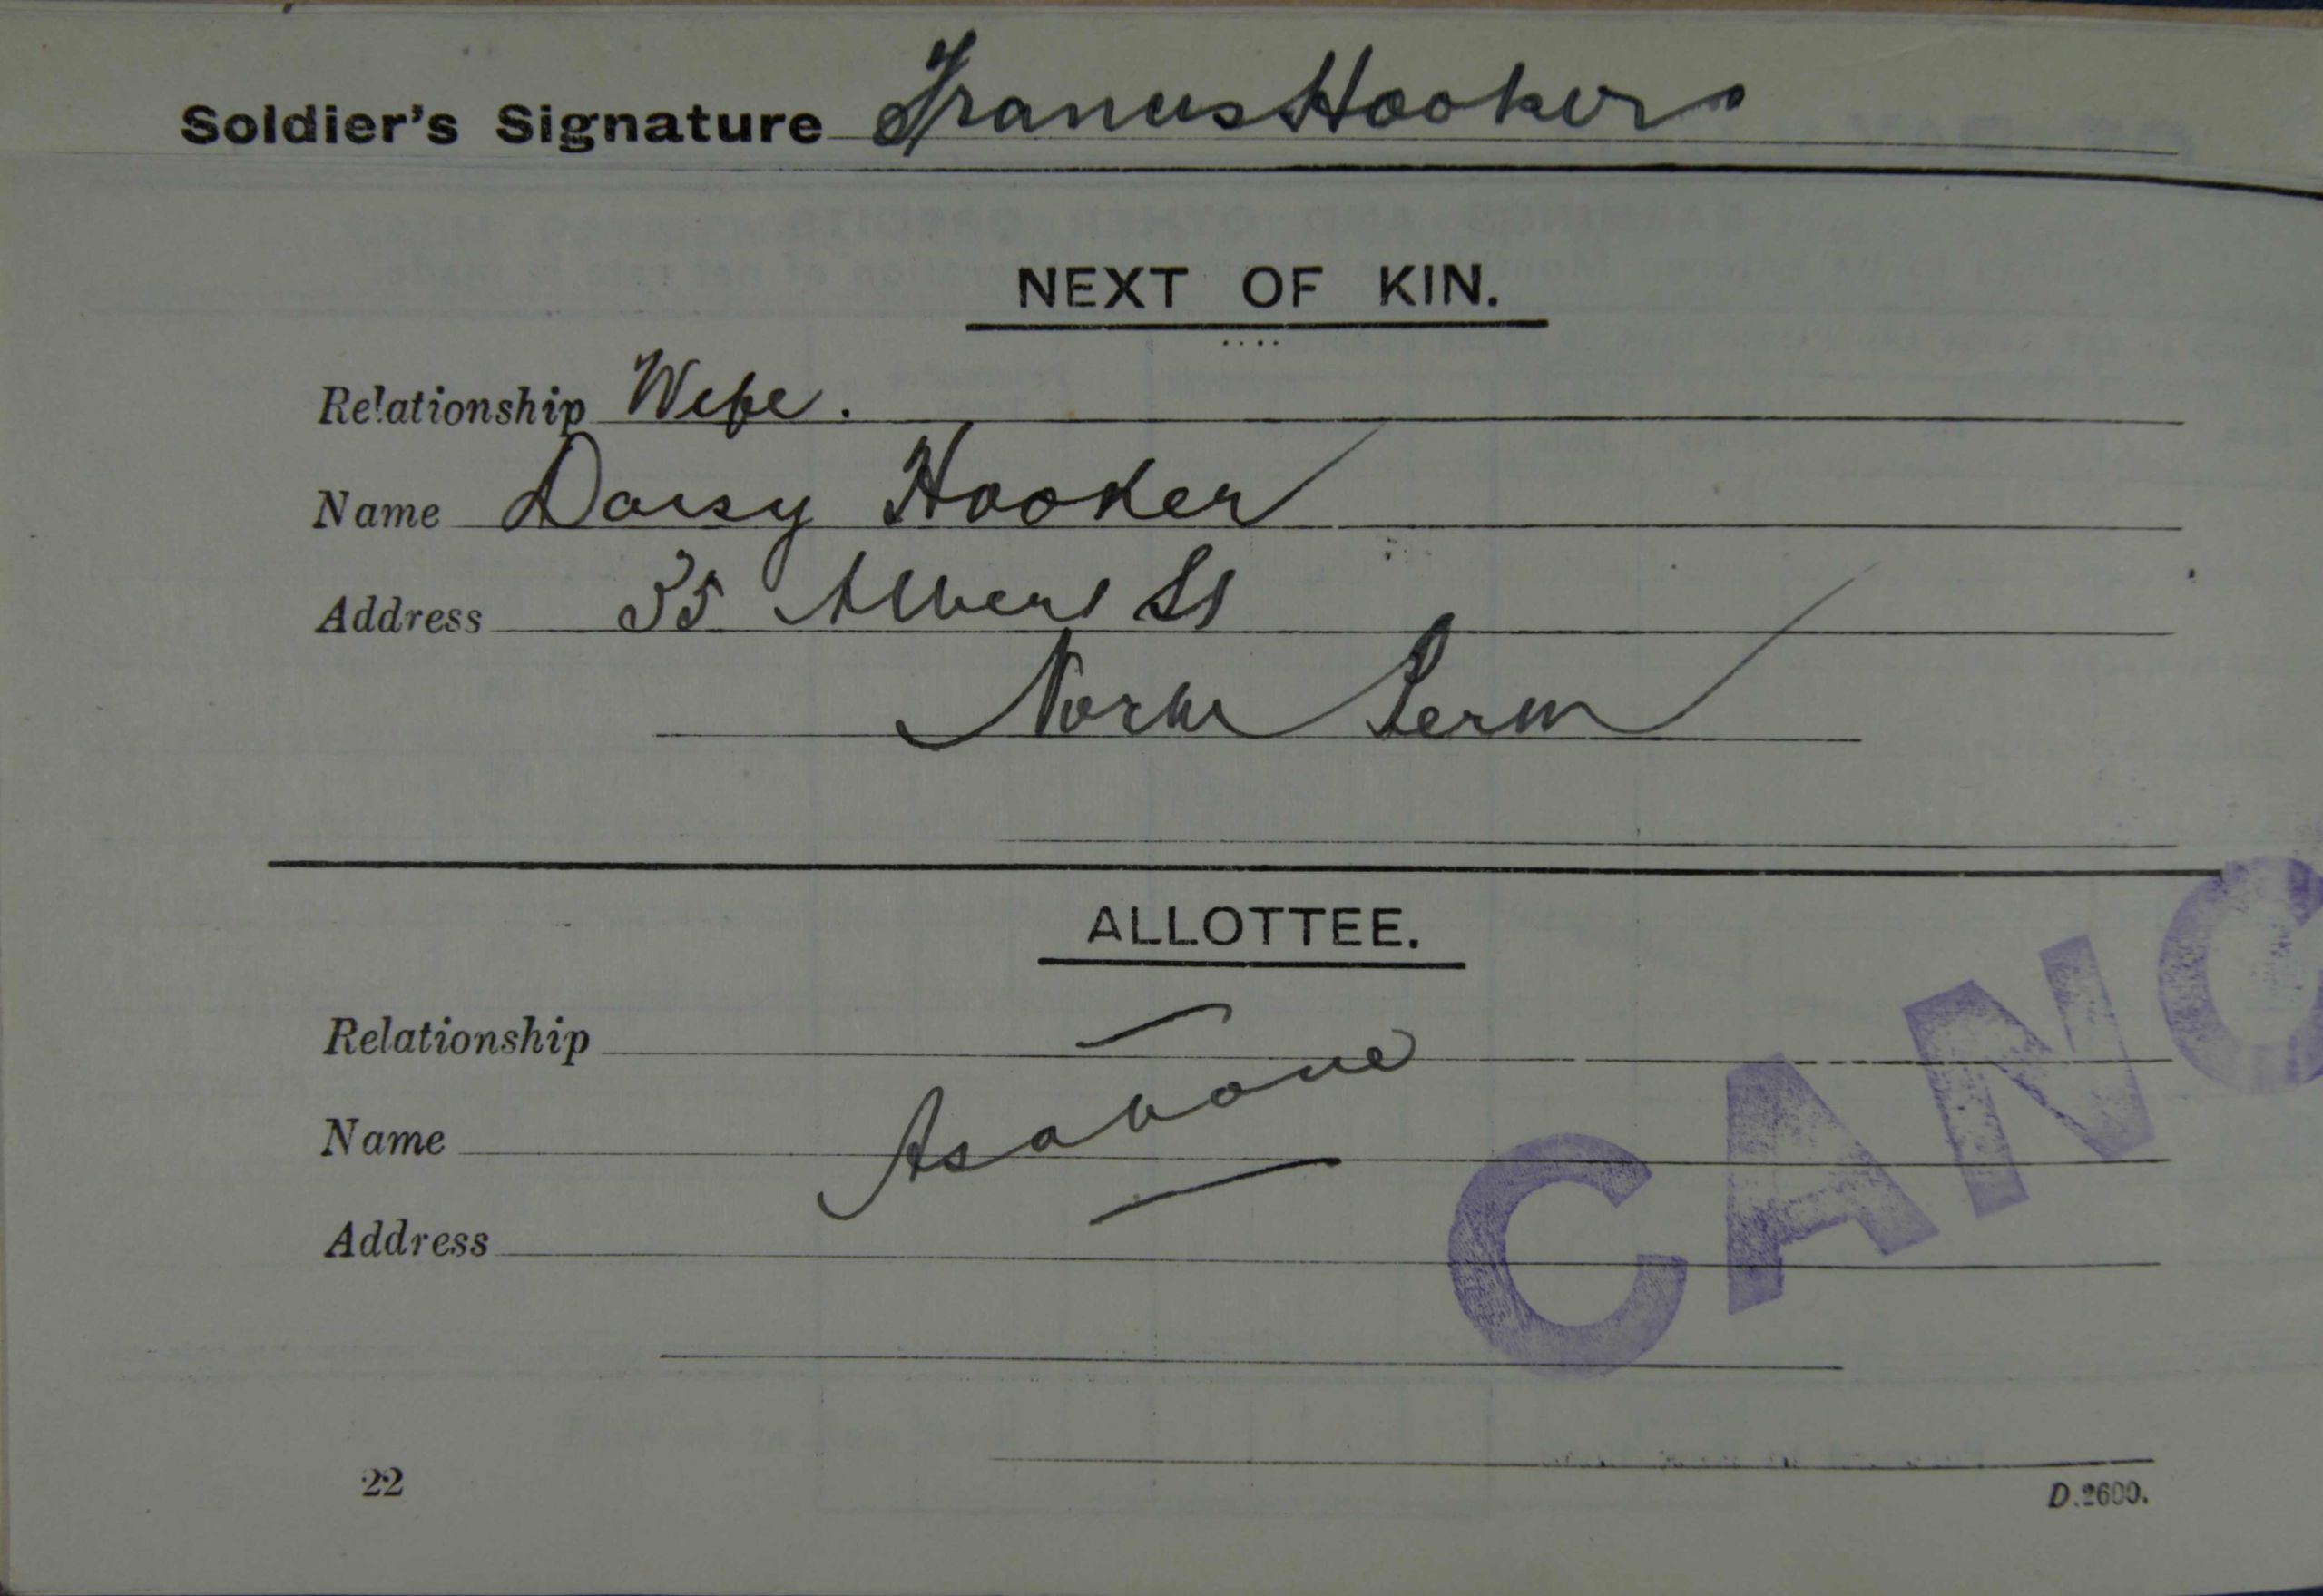 Soldier's Signature Francis Hooker
NEXT OF KIN.
Relationship Wife.
Name Daisy Hooker
Address 35 Albert St
North Perth
ALLOTTEE.
Relationship
Name As above
Address
CANC
22
D.2600.